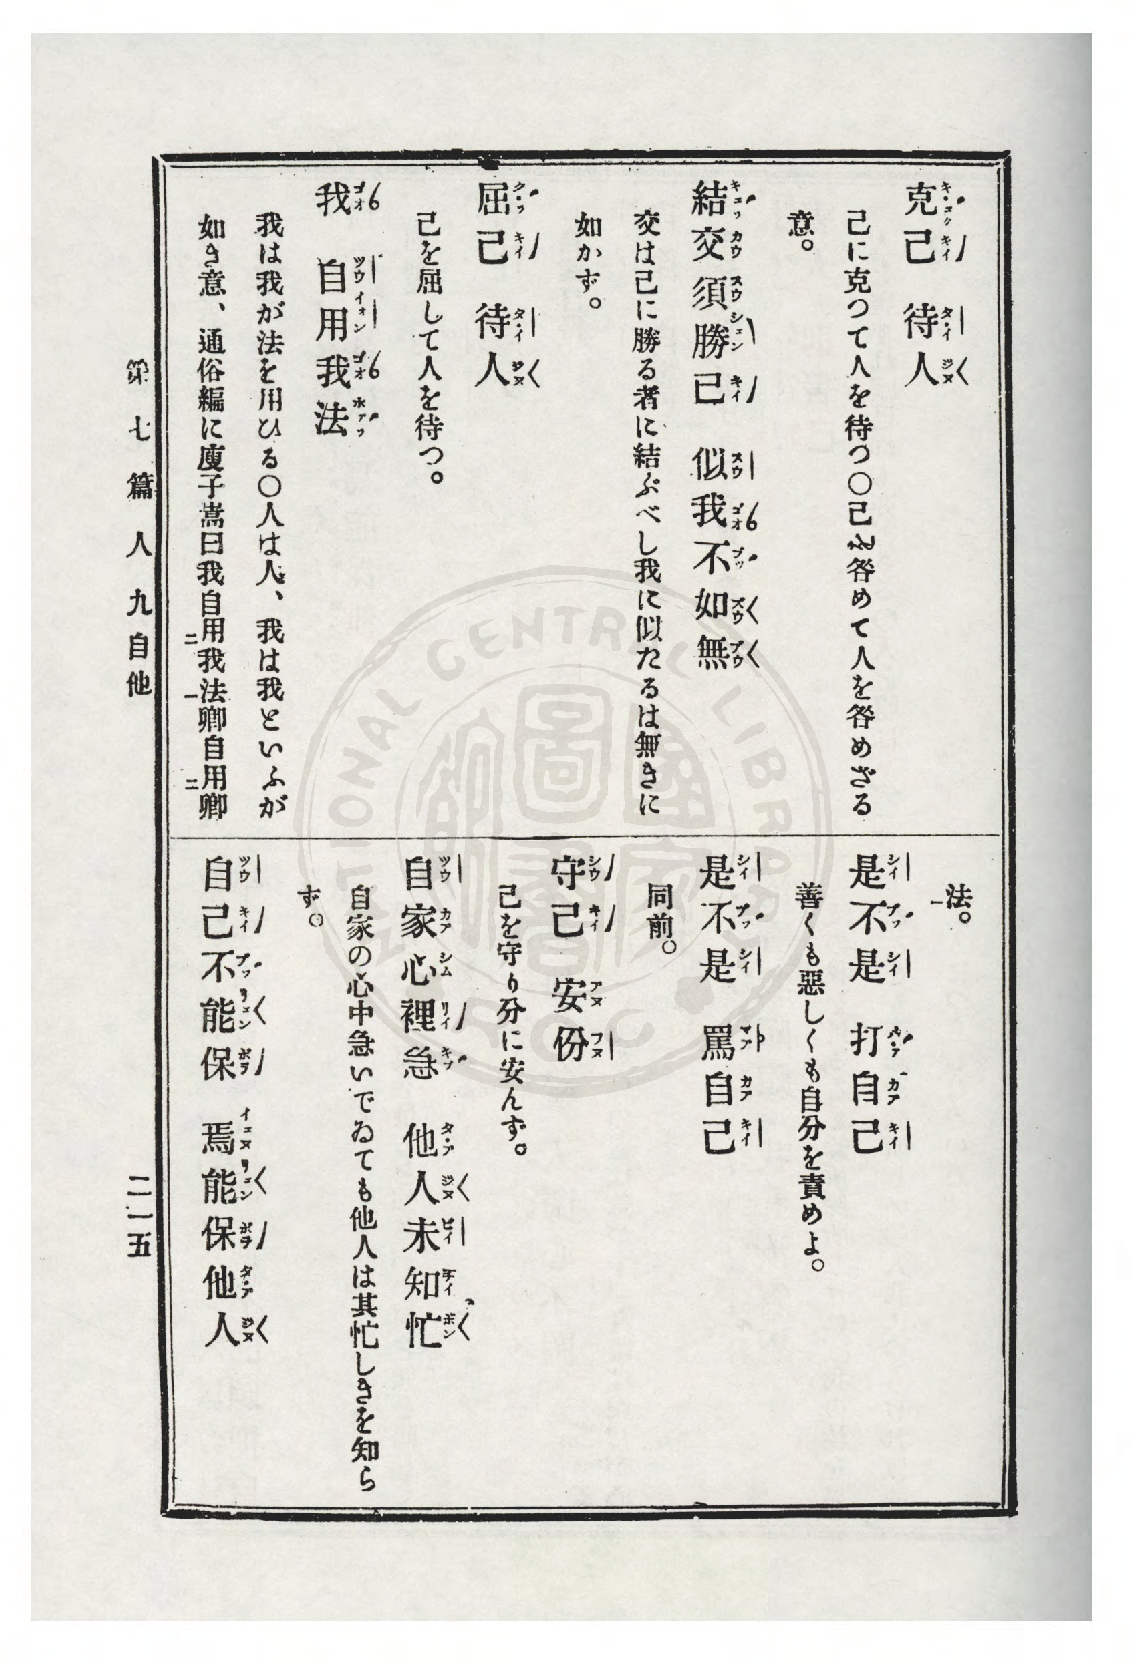 克己　待人
己に克つて人を待つ〇己を咎めて人を咎めざる
意。
結交須勝己　似我不如無
交は己に勝る者に結ぶべし我に似たるは無きに
如かず。
屈己　待人
己を屈して人を待つ。
我　自用我法
我は我が法を用ひる〇人は人、我は我といふが
如き意、通俗編に庾子嵩曰我自用二我法一卿自用二卿
法一。
是不是　打自己
善くも惡しくも自分を責めよ。
是不是　罵自己
同前。
守己　安份
己を守り分に安んず。
自家心裡急　他人未知忙
自家の心中急いでゐても他人は其忙しきを知ら
ず。
自己不能保　焉能保他人
第七篇　人　九　自他
二一五
NATIONAL CENTRAL LIBRARY
R.O.C
國家圖書館